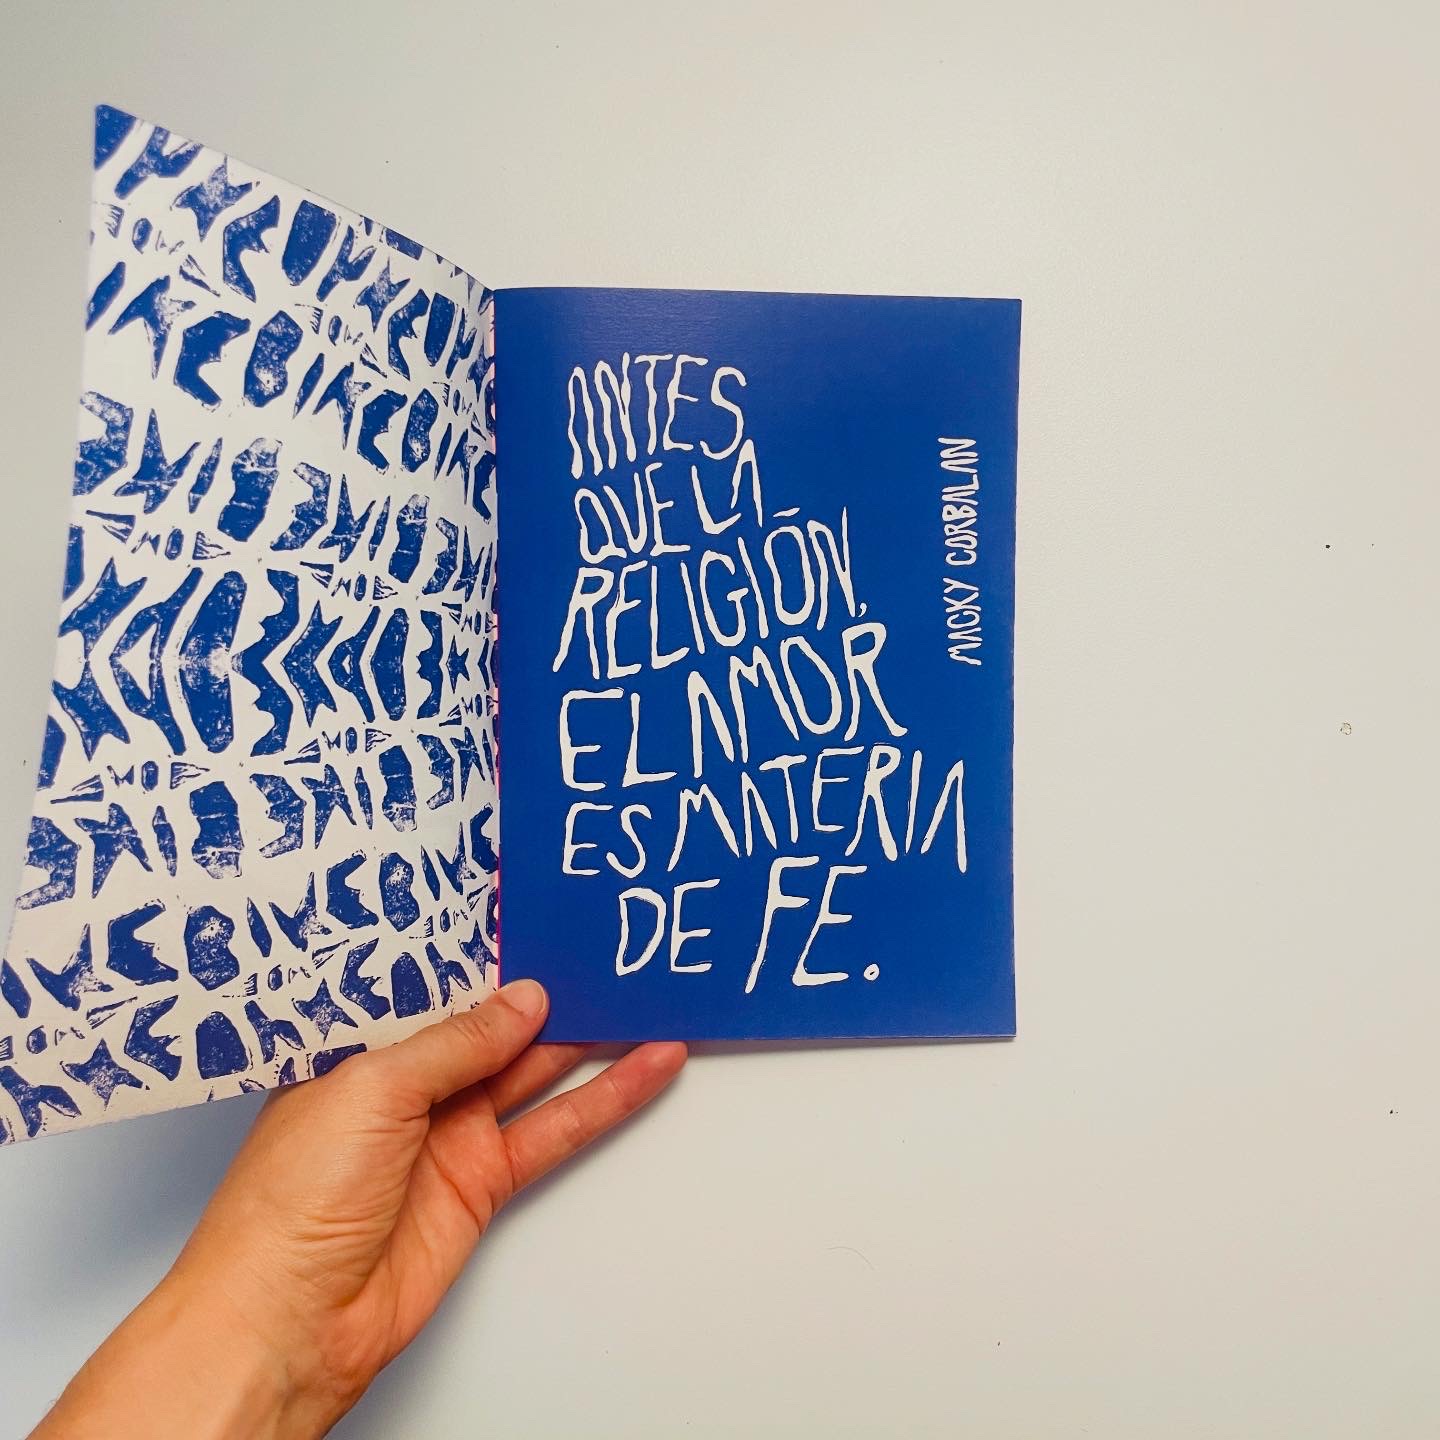 ANTES
QUE LA
RELIGIÓN,
EL AMOR
ES MATERIA
DE FE.
MACKY CORBALAN